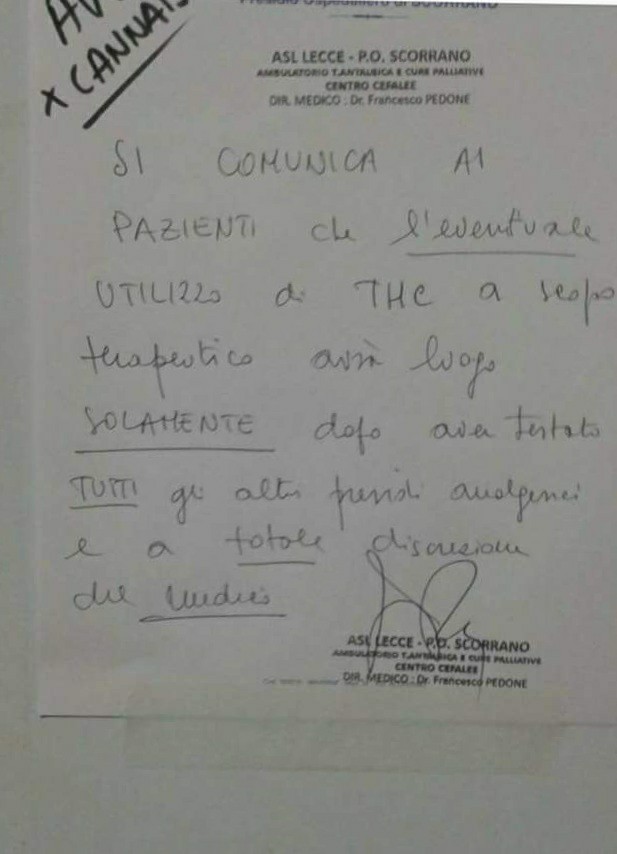 × CANNABIS
Presidio Ospedaliero di SCORRANO
ASL LECCE - P.O. SCORRANO
AMBULATORIO T.ANTALGICA E CURE PALLIATIVE
CENTRO CEFALEE
DIR. MEDICO : Dr. Francesco PEDONE
SI COMUNICA AI
PAZIENTI che l'eventuale
UTILIZZO di THC a scopo
terapeutico avrà luogo
SOLAMENTE dopo aver testato
TUTTI gli altri presidi analgesici
e a totale discrezione
del medico
ASL LECCE - P.O. SCORRANO
AMBULATORIO T.ANTALGICA E CURE PALLIATIVE
CENTRO CEFALEE
DIR. MEDICO : Dr. Francesco PEDONE